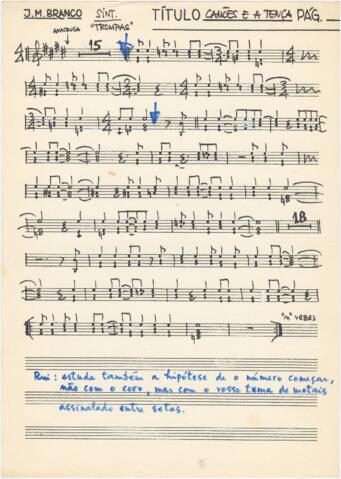 J.M. BRANCO SINT. "TROMPAS" TÍTULO CAMÕES E A TENÇA PÁG.
ANACRUSA
15
18
"n" VEZES
Rui: estuda também a hipótese de o número começar,
não com o coro, mas com o vosso tema de metais
assinalado entre setas.